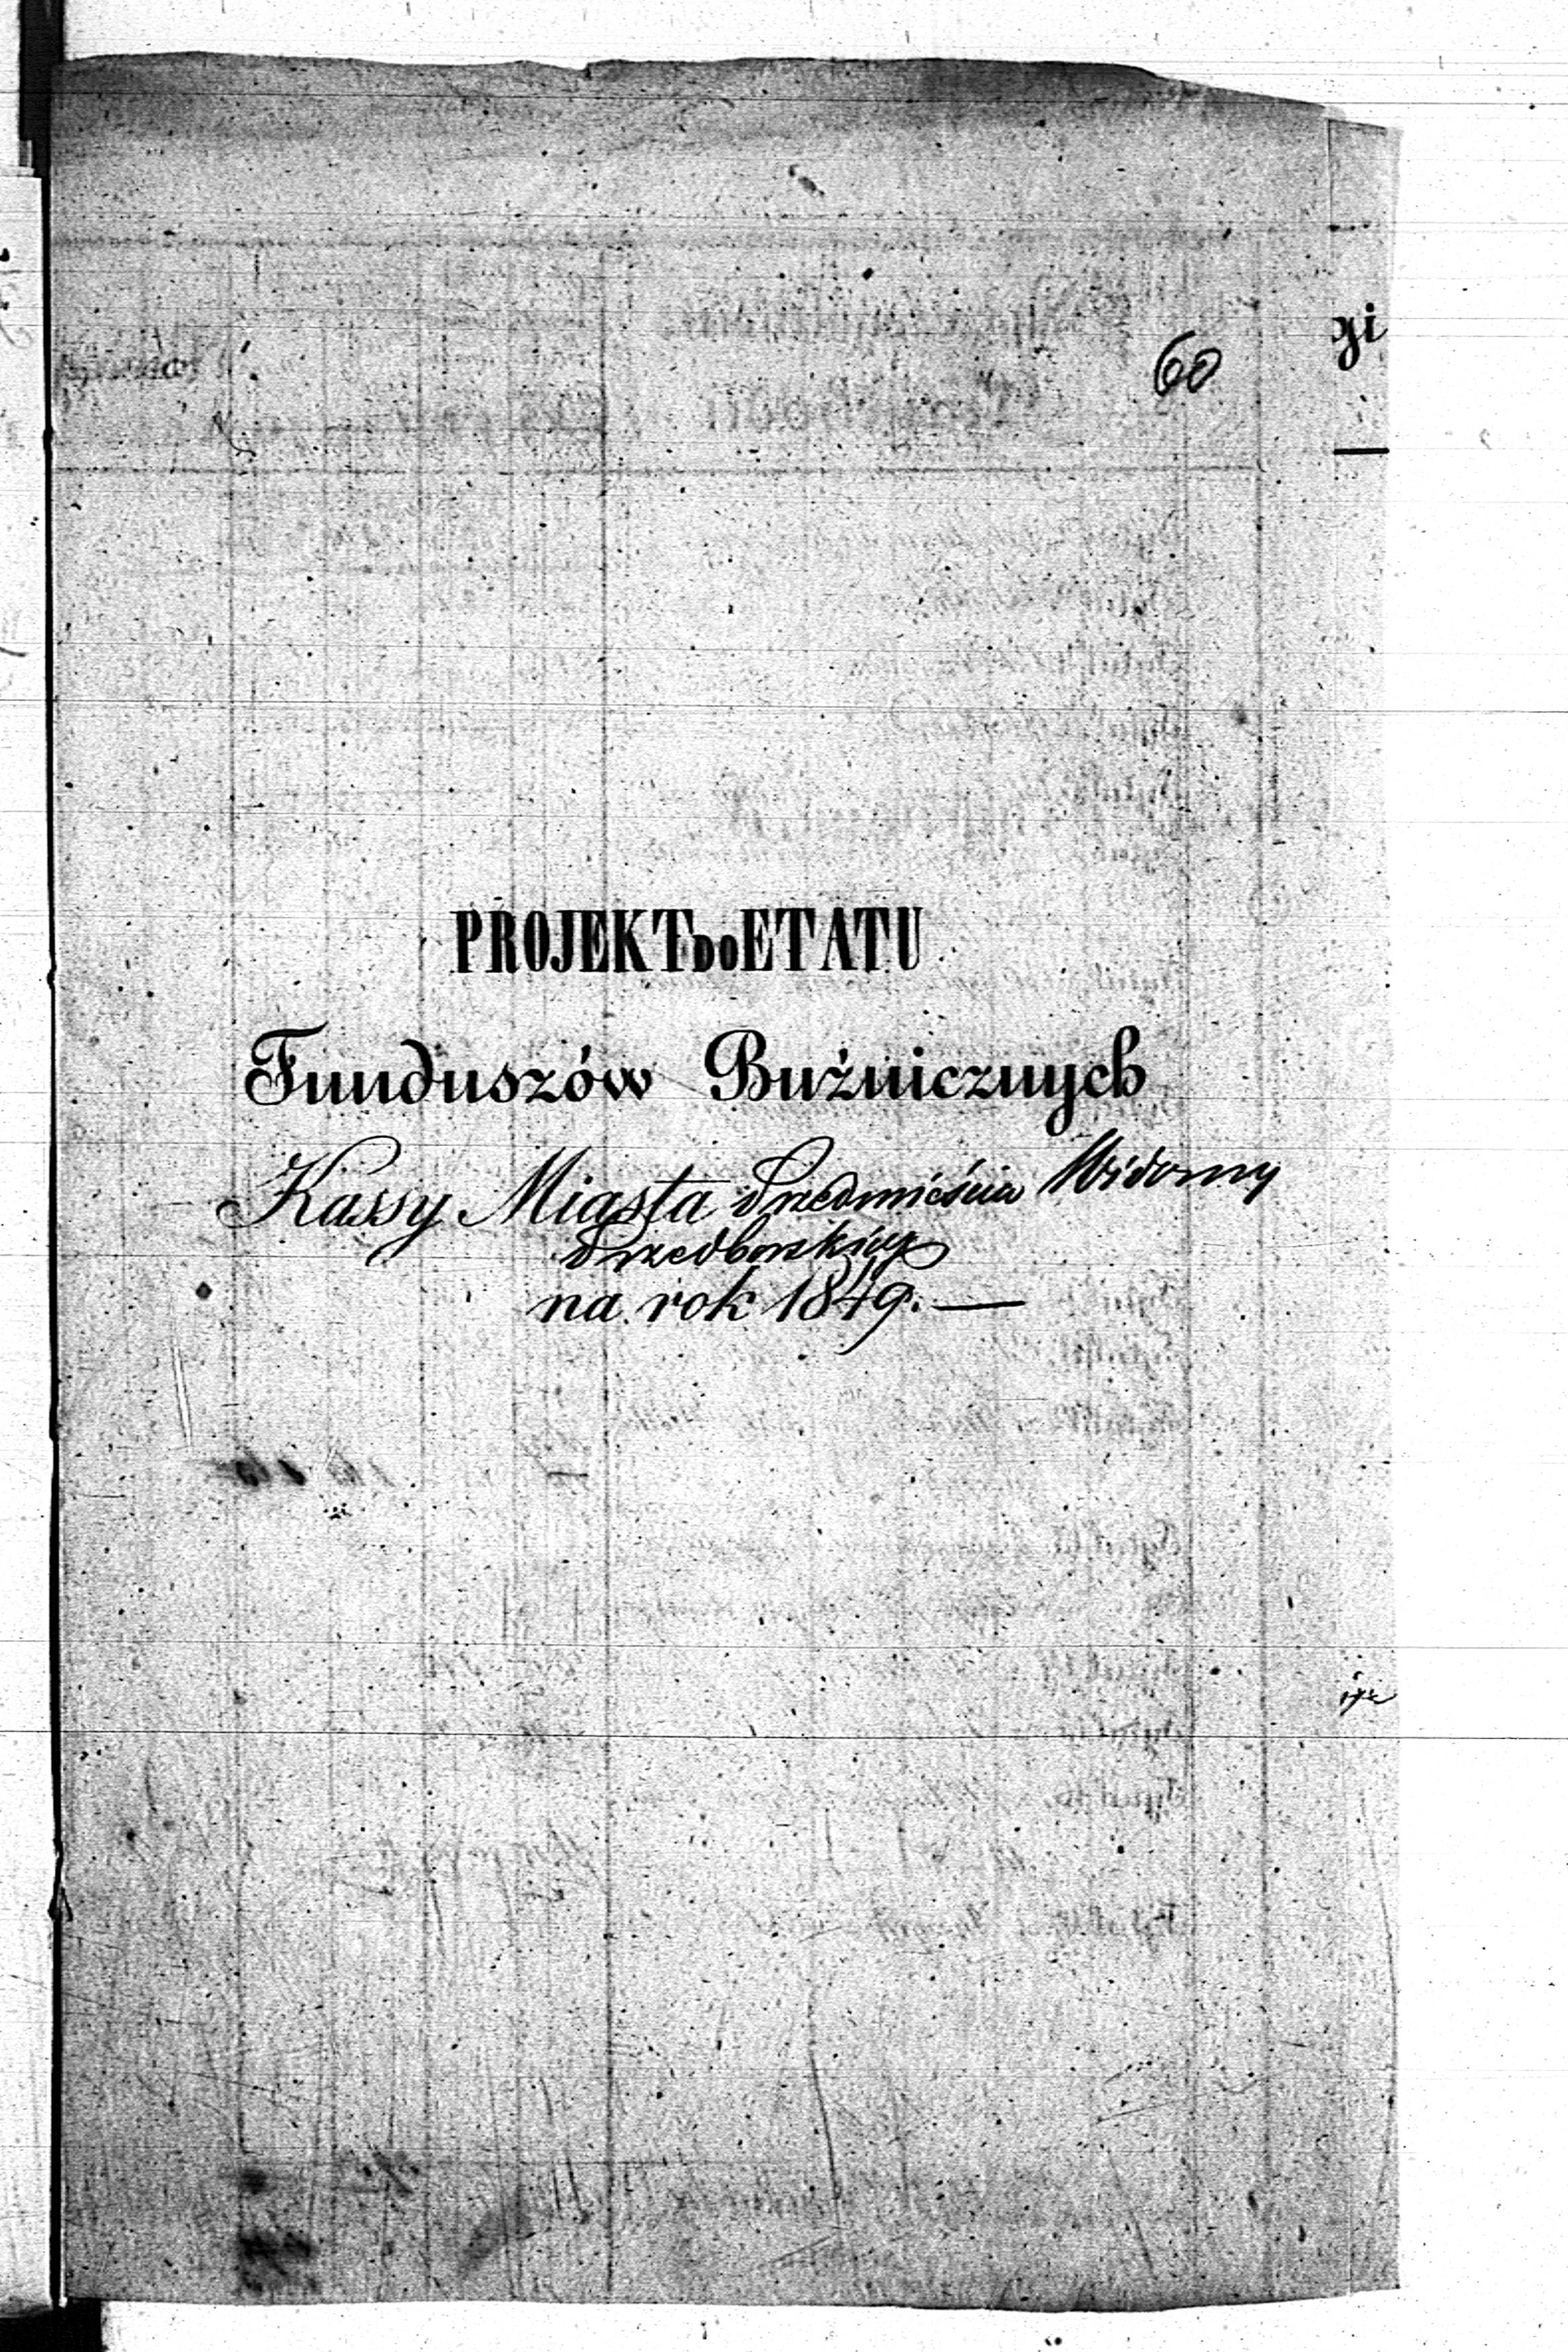 60
PROJEKT DO ETATU
Funduszów Bużniczuych
Kassy Miasta Przedmieścia Widomy
Przedborskiey
na rok 1849. —